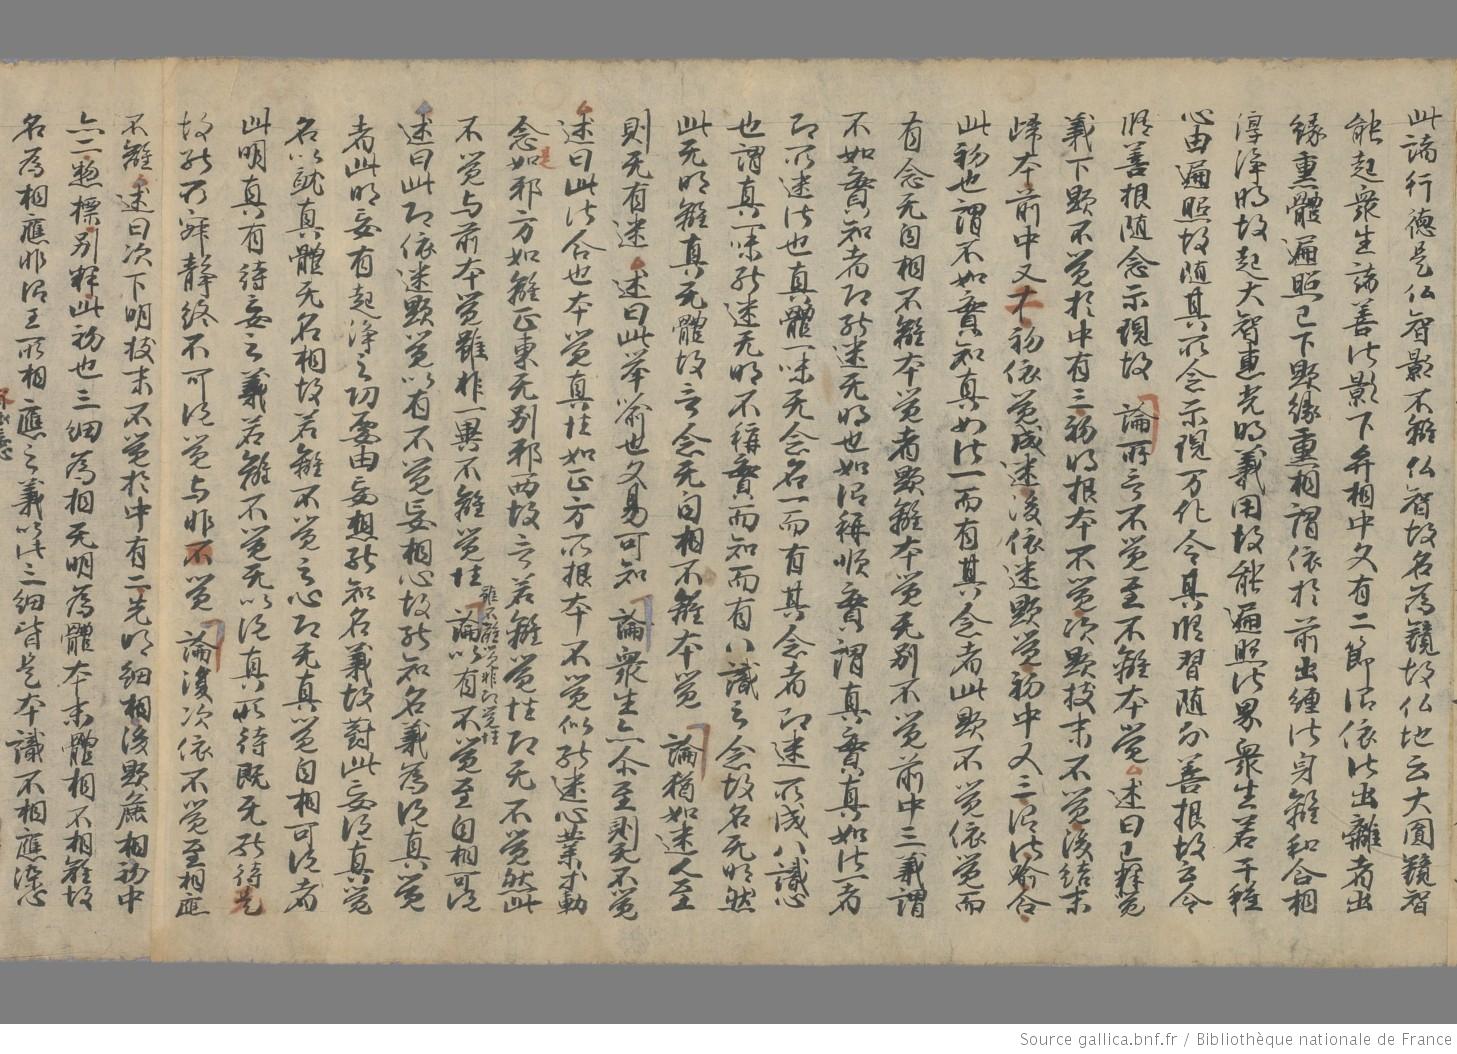 此論行德是仏智影不離仏智故名為鏡故仏地云大圓鏡智
能起眾生諸善法影下弁相中文有二節泛依法出離者出
緣熏體遍照已下顯緣熏相謂依於前出纏法身離和合相
淳淨明故起大智惠光明義用故能遍照法界眾生若干種
心由遍照故隨其所念示現万化令其脩習隨分善根故云令
脩善根隨念示現故 論所言不覺至不離本覺 述曰已釋覺
義下顯不覺於中有三初明根本不覺次顯枝末不覺後結末
歸本前中又 初依覺成迷後依迷顯覺初中又三 法喻合
此初也謂不如實知真如法一而有其念者此顯不覺依覺而
有念无自相不離本覺者顯離本覺无別不覺前中三義謂
不如實知者即能迷无明也如泛稱順實謂真實真如法一者
即所迷法也真體一味无念名一而有其念者即迷所成八識心
也謂真一味能迷无明不稱實而知而有八識之念故名无明然
此无明離真无體故言念无自相不離本覺 論猶如迷人至
則无有迷 述曰此舉喻也文易可知 論眾生亦尒至則无不覺
述曰此法合也本覺真性如正方所根本不覺似能迷心業等動
念如邪方如離正東无別邪西故言若離覺性即无不覺然此
不覺与前本覺雖非一異不離覺性 論以有不覺至自相可說
雖不離覺非即覺性
述曰此即依迷顯覺以有不覺妄相心故能知名義為說真覺
者此明妄有起淨之功 由妄想能知名義故對此妄說真覺
名以就真體无名相故若離不覺之心即无真覺自相可說者
此明真有待妄之義若離不覺无以說真所待既无能待
故能所寂靜終不可說覺与非不覺 論復次依不覺至相應
不離 述曰次下明枝末不覺於中有二先明細相後顯麁相初中
亦二惣標別釋此初也三細為相无明為體本末體相不相離故
名為相應非泛王所相應之義以此三細皆是本識不相應染心